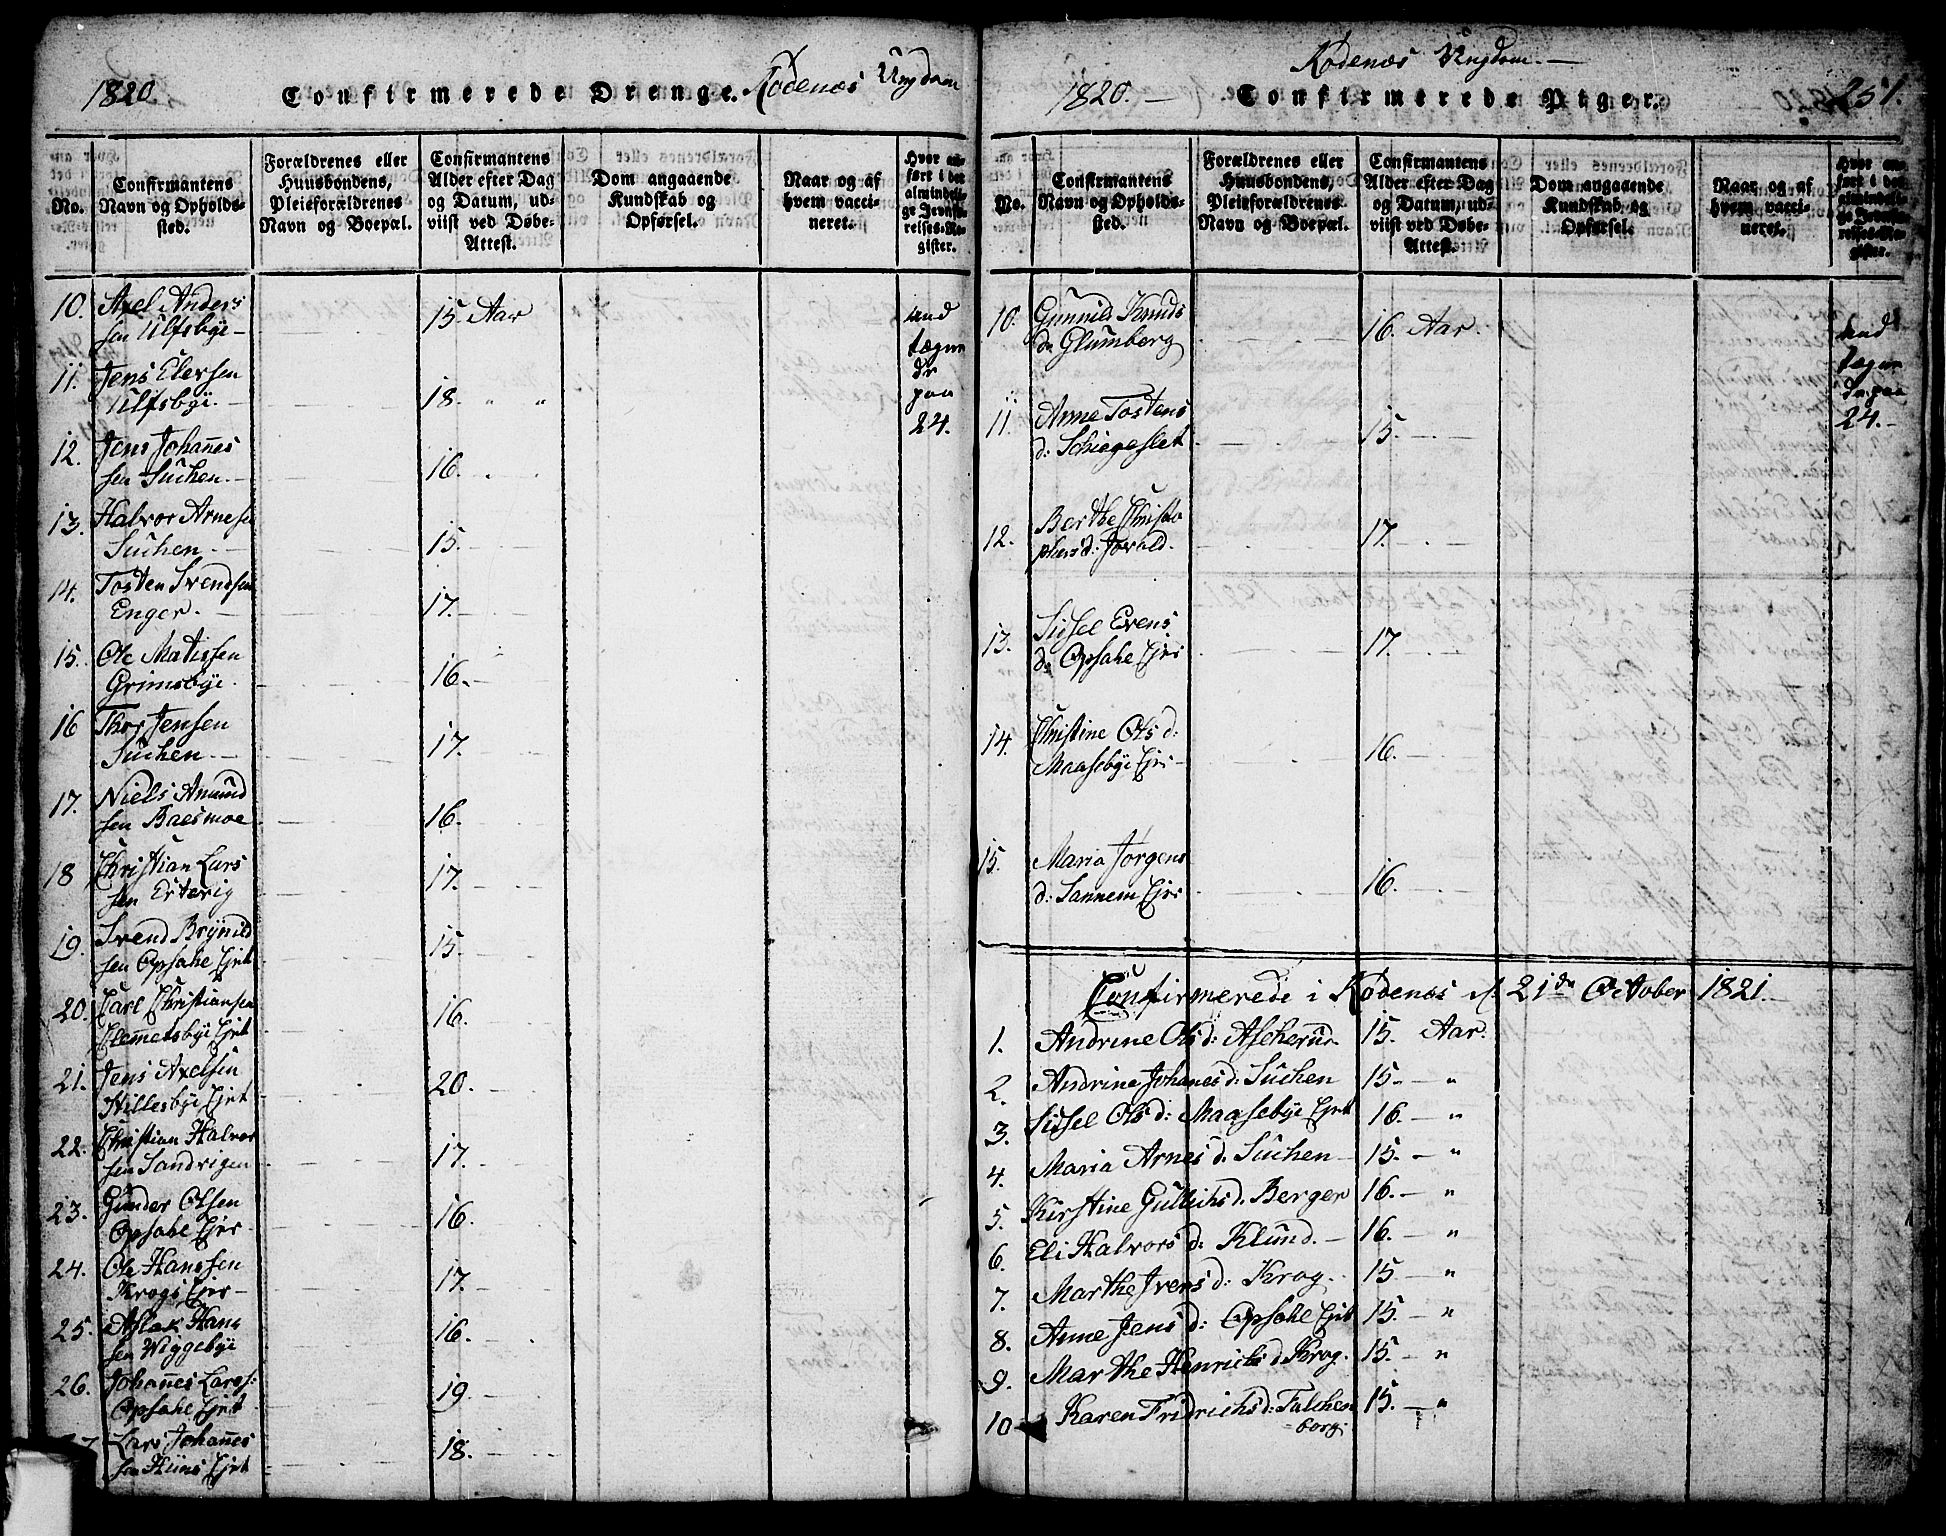 1820.
Confirmerede Drenge. Rødenæs Ungdom
No.
Confirmantens
Navn og Opholds-
sted.
Forældrenes eller
Huusbondens,
Pleieforældrenes
Navn og Boepæl.
Confirmantens
Alder efter Dag
og Datum, ud-
viist ved Døbe-
Attest.
Dom angaaende
Kundskab og
Opførsel.
Naar og af
hvem vacci-
neret.
Hvor an-
ført i det
almindeli-
ge Jevnfø-
relses-Re-
gister.
10. Axel Anders
sen Ulfsbye 15. Aar
11. Jens Elersen
Ulfsbye. 18. " "
12. Jens Johan̄es
sen Suchen. 16.
13. Halvor Arnesen
Suchen. 15.
14. Tosten Svendsen
Enger. 17.
15. Ole Matissen
Grimsbye. 16.
16 Thor Jensen
Suchen. 17.
17. Niels Amund
sen Baesmoe 16.
18 Christian Lars
sen Erterig 17.
19. Svend Brynild
sen Opsahe Ejet 15.
20. Carl Christiansen
Clem̄etsbye Ejet 16.
21. Jens Axelsen
Hillesbye Ejet 20.
22. Christian Halvor
sen Sandvigen 17.
23. Gunder Olsen
Opsahe Ejer 16.
24. Ole Hanssen
Krogs Ejer 17.
25. Aslak Hans
sen Wiggebye 16.
26. Johan̄es Lars:
Opsahe Ejet 19.
Lars Johan̄es
sen Hüns Ejet 18.
and
tægne
de
paa
24.
Rødenæs Ungdom.
1820. Confirmerede Piger. 251.
No.
Confirmantens
Navn og Opholds-
sted.
Forældrenes eller
Huusbondens,
Pleieforældrenes
Navn og Boepæl.
Confirmantens
Alder efter Dag
og Datum, ud-
viist ved Døbe-
Attest.
Dom angaaende
Kundskab og
Opførsel.
Naar og af
hvem vacci-
neret.
Hvor an-
ført i det
almindeli-
ge Jevnfø-
relses-Re-
gister.
10. Gunnild Knuds
dr Glumberg 16. Aar.
11. Anne Tostens
d: Schiegeslet 15.
12. Berthe Christo
phers d: Jovald. 17.
13. Sidsel Evens
dr Opsahe Ejer 17.
14. Christine Ols d:
Maasebye Ejer 16.
15. Maria Jørgens
d: Sannem Ejer 16.
and
tægne
de paa
24.
Confirmerede i Rødenæs d. 21de October 1821.
1. Andrine Ols d: Ascherud 15. Aar.
2. Andrine Johanes d: Suchen 15. "
3. Sidsel Ols d: Maasebye Ejet 16. "
4. Maria Arnes d: Suchen 15. "
5. Kirstine Gullichs d. Berger 16. "
6. Eli Halvors d: Klund. 16. "
7. Marthe Ivers d: Krog. 15 "
8. Anne Jens d: Opsahe Ejet 15. "
9. Marthe Henrichs d. Krog. 15. "
10 Karen Fridrichs d: Falchen 15. "
borg.